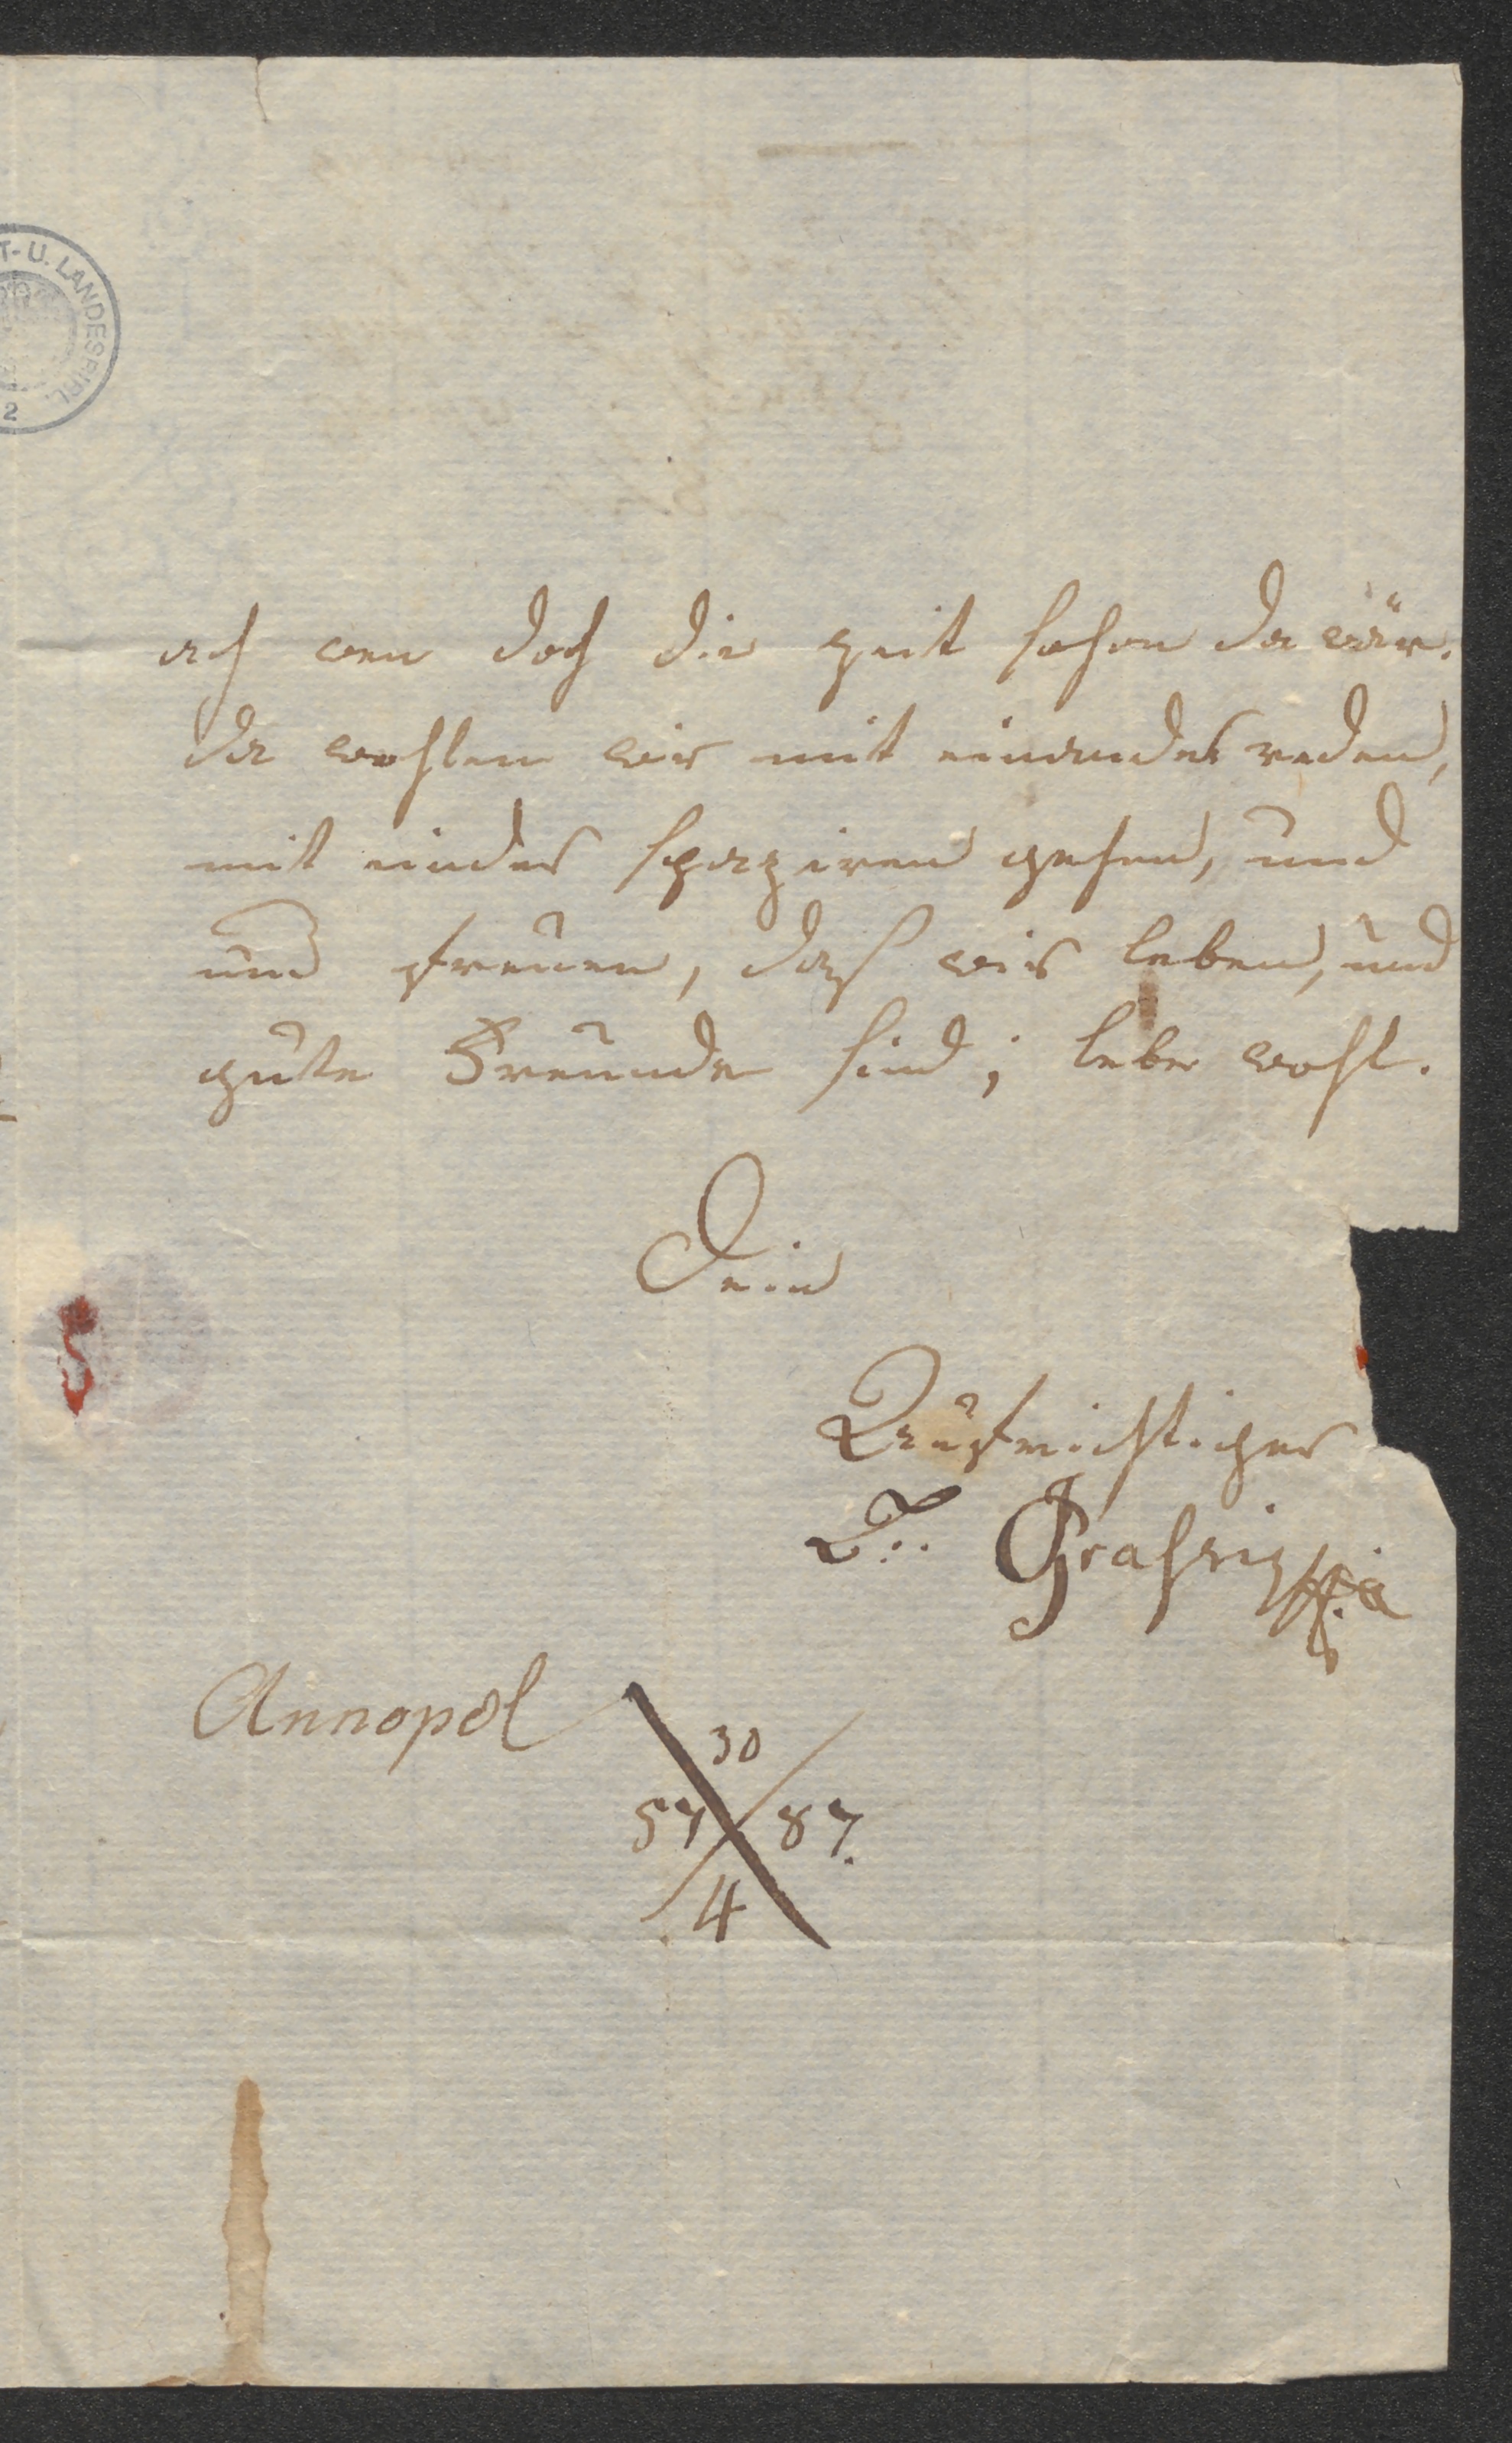 T- U. LANDESBIBL
2
ach wen doch die zeit schon da wär.
da wohlen wir mit einander reden,
mit einder spaziren gehen, und
und freuen, daß wir leben, und
gute Freunde sind; lebe wohl.
Dein
Aufrichtiger
Annopol
30
57 87.
4